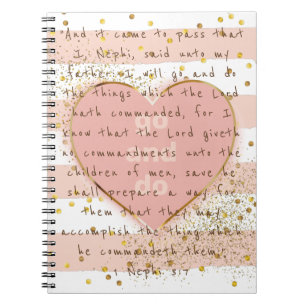 And it came to pass that
I, Nephi, said unto my
father: I will go and do
the things which the Lord
hath commanded, for I
know that the Lord giveth
no commandments unto the
children of men, save he
shall prepare a way for
them that they may
accomplish the thing which
he commandeth them.
1 Nephi 3:7
go
and
do